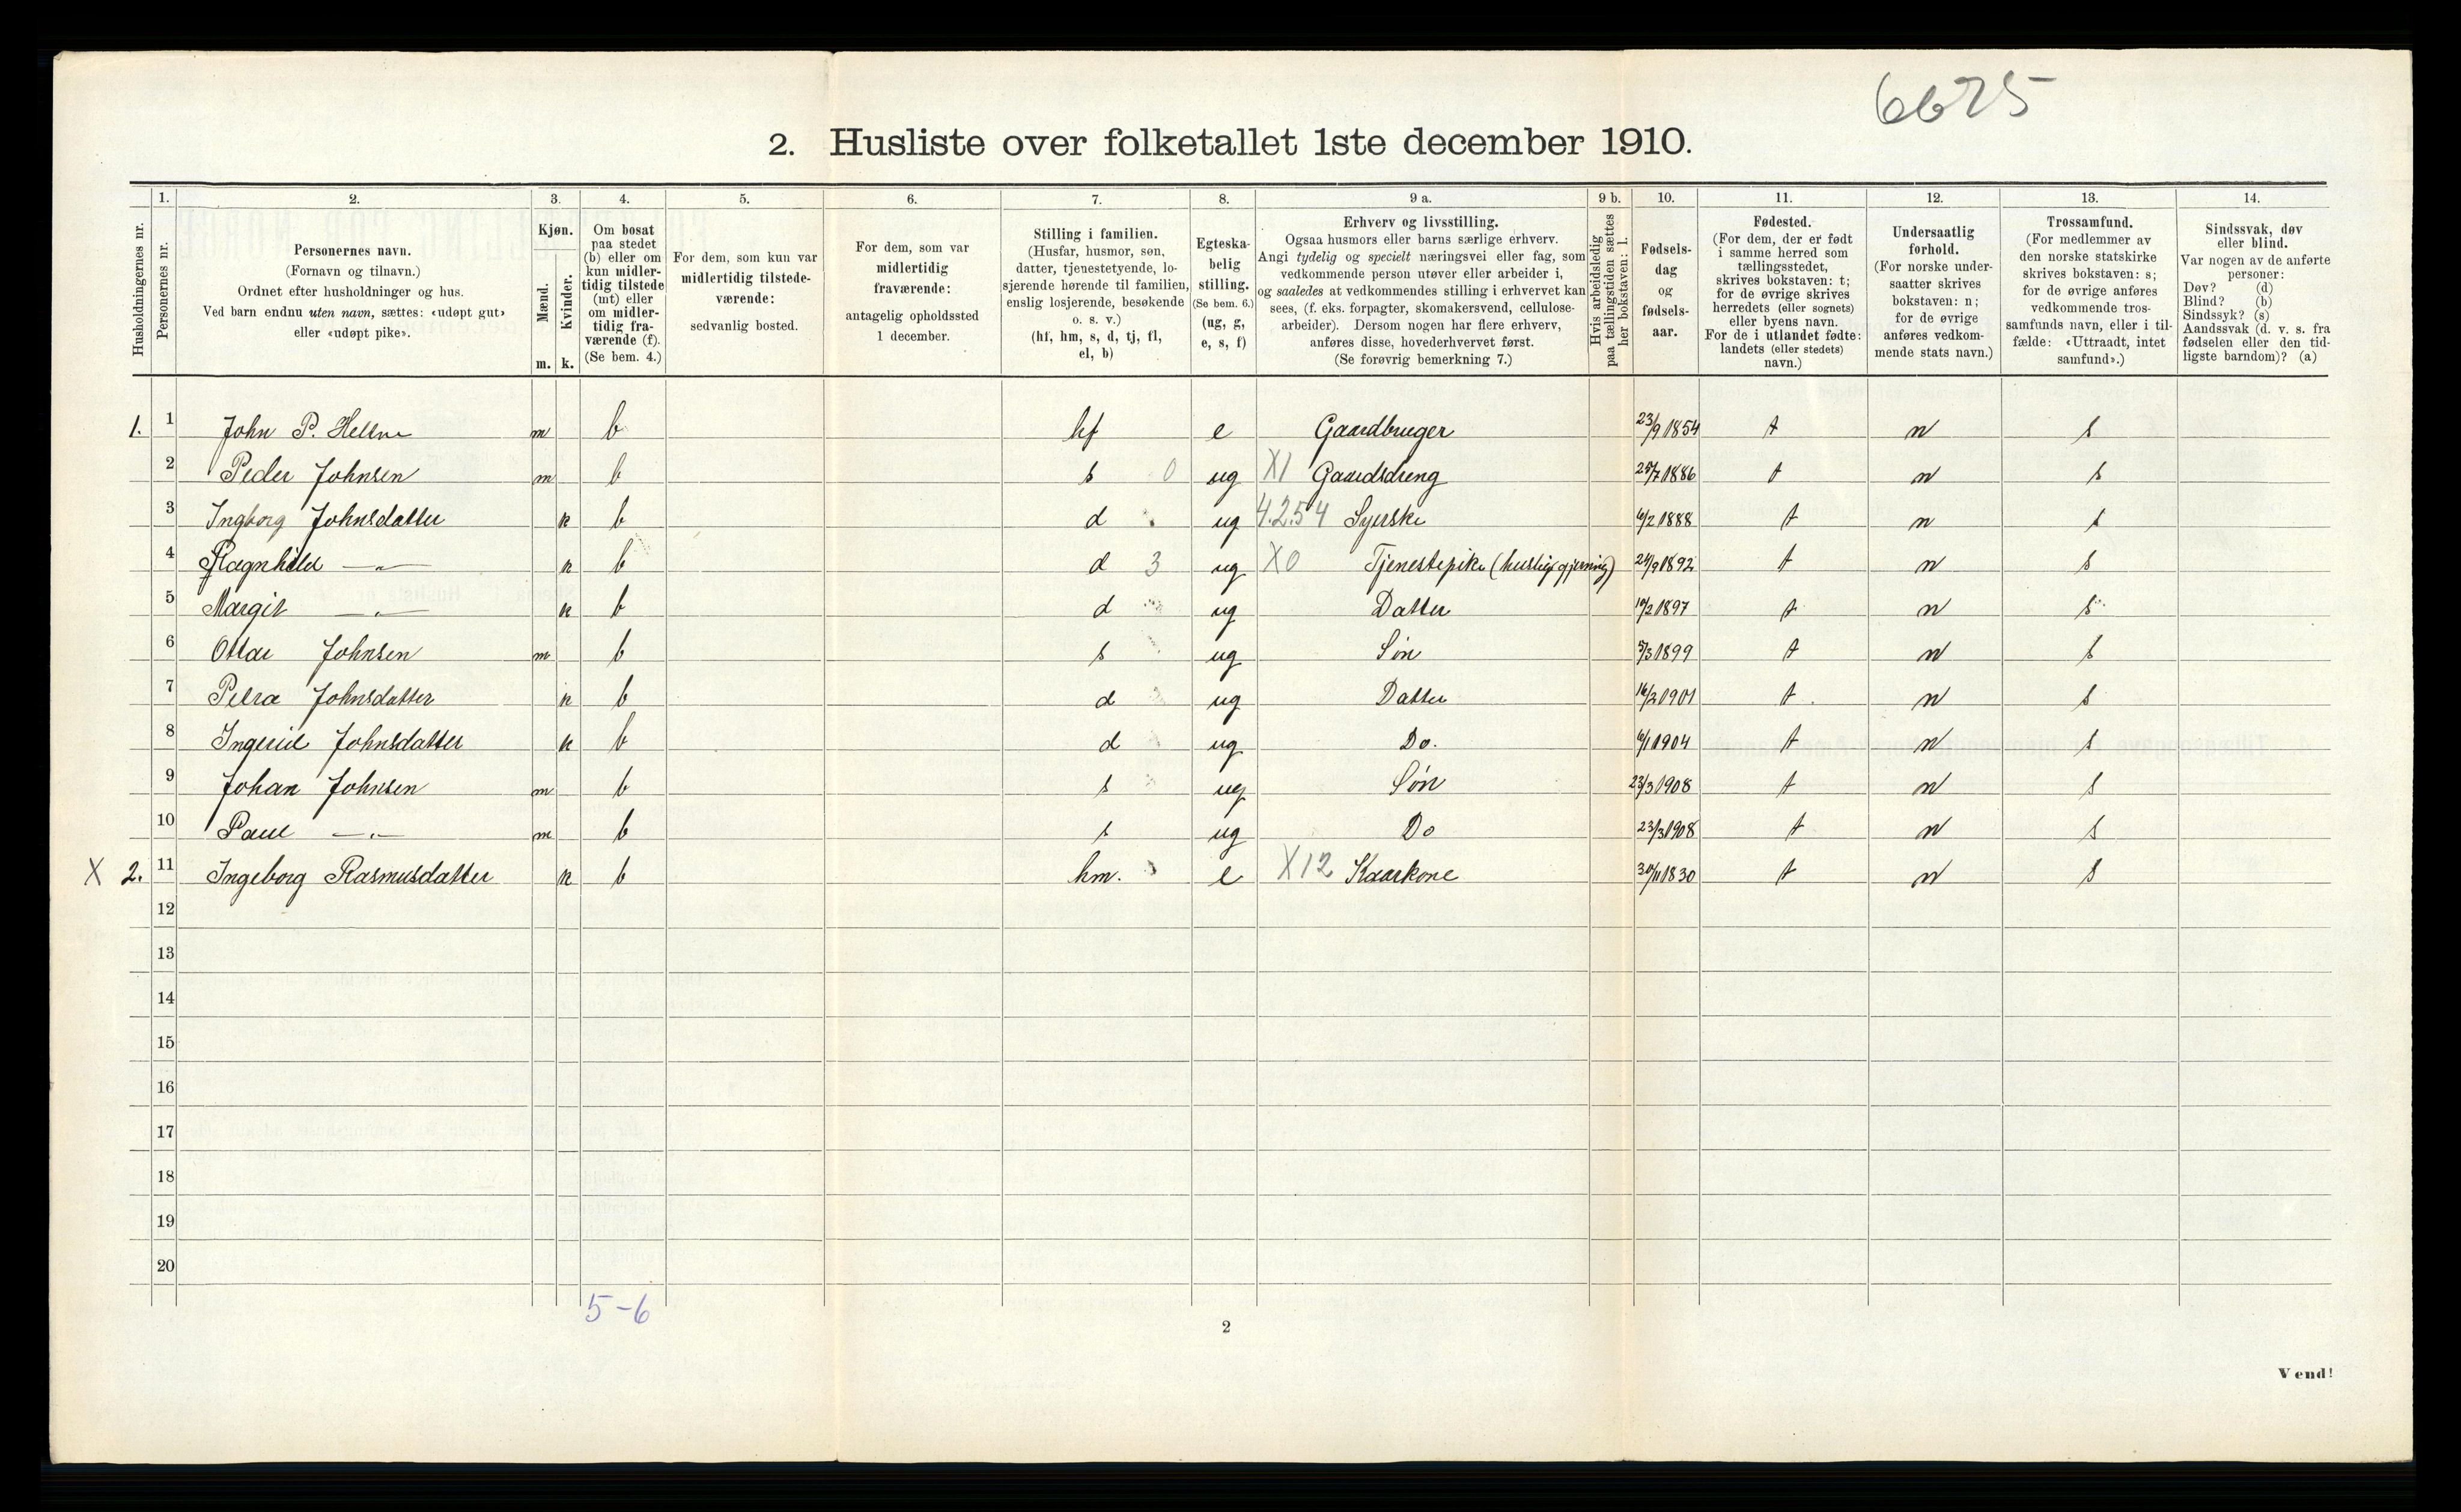 6625
2. Husliste over folketallet 1ste december 1910.
Husholdningernes nr.
1. Personernes nr.
2. Personernes navn.
(Fornavn og tilnavn.)
Ordnet efter husholdninger og hus.
Ved barn endnu uten navn, sættes: «udøpt gut»
eller «udøpt pike».
3. Kjøn.
Mænd. Kvinder.
m. k.
4. Om bosat
paa stedet
(b) eller om
kun midler-
tidig tilstede
(mt) eller
om midler-
tidig fra-
værende (f).
(Se bem. 4.)
5. For dem, som kun var
midlertidig tilstede-
værende:
sedvanlig bosted.
6. For dem, som var
midlertidig
fraværende:
antagelig opholdssted
1 december.
7. Stilling i familien.
(Husfar, husmor, søn,
datter, tjenestetyende, lo-
sjerende hørende til familien,
enslig losjerende, besøkende
o. s. v.)
(hf, hm, s, d, tj, fl,
el, b)
8. Egteska-
belig
stilling.
(Se bem. 6.)
(ug, g,
e, s, f)
9 a. Erhverv og livsstilling.
Ogsaa husmors eller barns særlige erhverv.
Angi tydelig og specielt næringsvei eller fag, som
vedkommende person utøver eller arbeider i,
og saaledes at vedkommendes stilling i erhvervet kan
sees, (f. eks. forpagter, skomakersvend, cellulose-
arbeider). Dersom nogen har flere erhverv,
anføres disse, hovederhvervet først.
(Se forøvrig bemerkning 7.)
9 b. Hvis arbeidsledig
paa tællingstiden sættes
her bokstaven: l.
10. Fødsels-
dag
og
fødsels-
aar.
11. Fødested.
(For dem, der er født
i samme herred som
tællingsstedet,
skrives bokstaven: t;
for de øvrige skrives
herredets (eller sognets)
eller byens navn.
For de i utlandet fødte:
landets (eller stedets)
navn.)
12. Undersaatlig
forhold.
(For norske under-
saatter skrives
bokstaven: n;
for de øvrige
anføres vedkom-
mende stats navn.)
13. Trossamfund.
(For medlemmer av
den norske statskirke
skrives bokstaven: s;
for de øvrige anføres
vedkommende tros-
samfunds navn, eller i til-
fælde: «Uttraadt, intet
samfund».)
14. Sindssvak, døv
eller blind.
Var nogen av de anførte
personer:
Døv? (d)
Blind? (b)
Sindssyk? (s)
Aandssvak (d. v. s. fra
fødselen eller den tid-
ligste barndom)? (a)
1. 1 John P. m b hf e Gaardbruger 23/9 1854 t n s
2 Peder Johnsen m b s 0 ug X1 Gaardsdreng 25/7 1886 t n s
3 Ingborg Johnsdatter k b d ug 4.2.54 Syerske 6/2 1888 t n s
4 Ragnhild —"— k b d 3 ug X0 Tjenestepike (huslig gjerning) 24/9 1892 t n s
5 Margit —"— k b d ug Datter 10/2 1897 t n s
6 Ottar Johnsen m b s ug Søn 5/3 1899 t n s
7 Petra Johnsdatter k b d ug Datter 16/3 1901 t n s
8 Ingerid Johnsdatter k b d ug Do. 6/1 1904 t n s
9 Johan Johnsen m b s ug Søn 23/3 1908 t n s
10 Paul —"— m b s ug Do 23/3 1908 t n s
X 2. 11 Ingeborg Rasmusdatter k b hm. e X12 Kaarkone 30/11 1830 t n s
12
13
14
15
16
17
18
19
20
5-6
2
Vend!